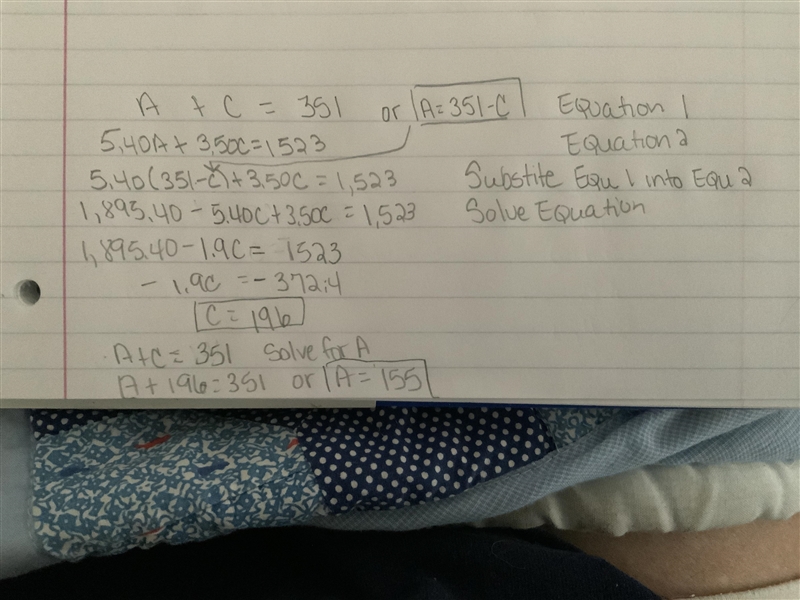 A + C = 351 or A=351-C Equation 1
5.40A + 3.50C=1523 Equation 2
5.40(351-C)+3.50C=1,523 Substite Equ 1 into Equ 2
1,895.40 - 5.40C+3.50C=1,523 Solve Equation
1,895.40-1.9C= 1523
- 1.9C =-372.4
C = 196
A+C= 351 Solve for A
A+196=351 or A=155